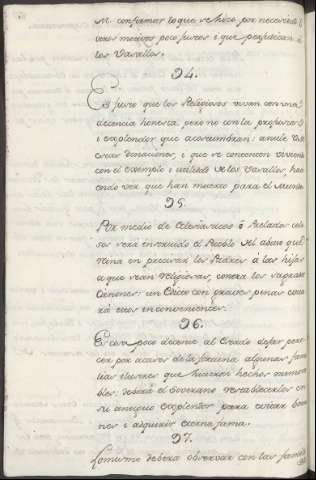 M. confirmar lo que se hizo por necesidad i
otros motivos poco justos i que perjudican a
los Vasallos.
94.
Es justo que los Religiosos vivan con una
decencia honesta, pero no con la profusion
i explendor que acostumbran: anule
donaciones, i que se contenten viviendo
con el exemplo i utilidad de los Vasallos, haci
endo ver que han muerto para el Mundo
95.
Por medio de Eclesiasticos ó Prelados celo
sos será instruido el Pueblo del abuso que
reina en precisar los Padres a las hijas
a que sean religiosas, contra los sagrados
Canones: un Edicto con graves penas
rá estos inconvenientes.
96.
Es cosa poco decente al Estado dejar pere
cer por acasos de la fortuna algunas fami
lias ilustres que hicieron hechos memora
bles: deberá el Soberano restablecerlas en
su antiguo explendor para criar bue
nos i adquirir eterna fama.
97.
Lo mismo deberá observar con las familias